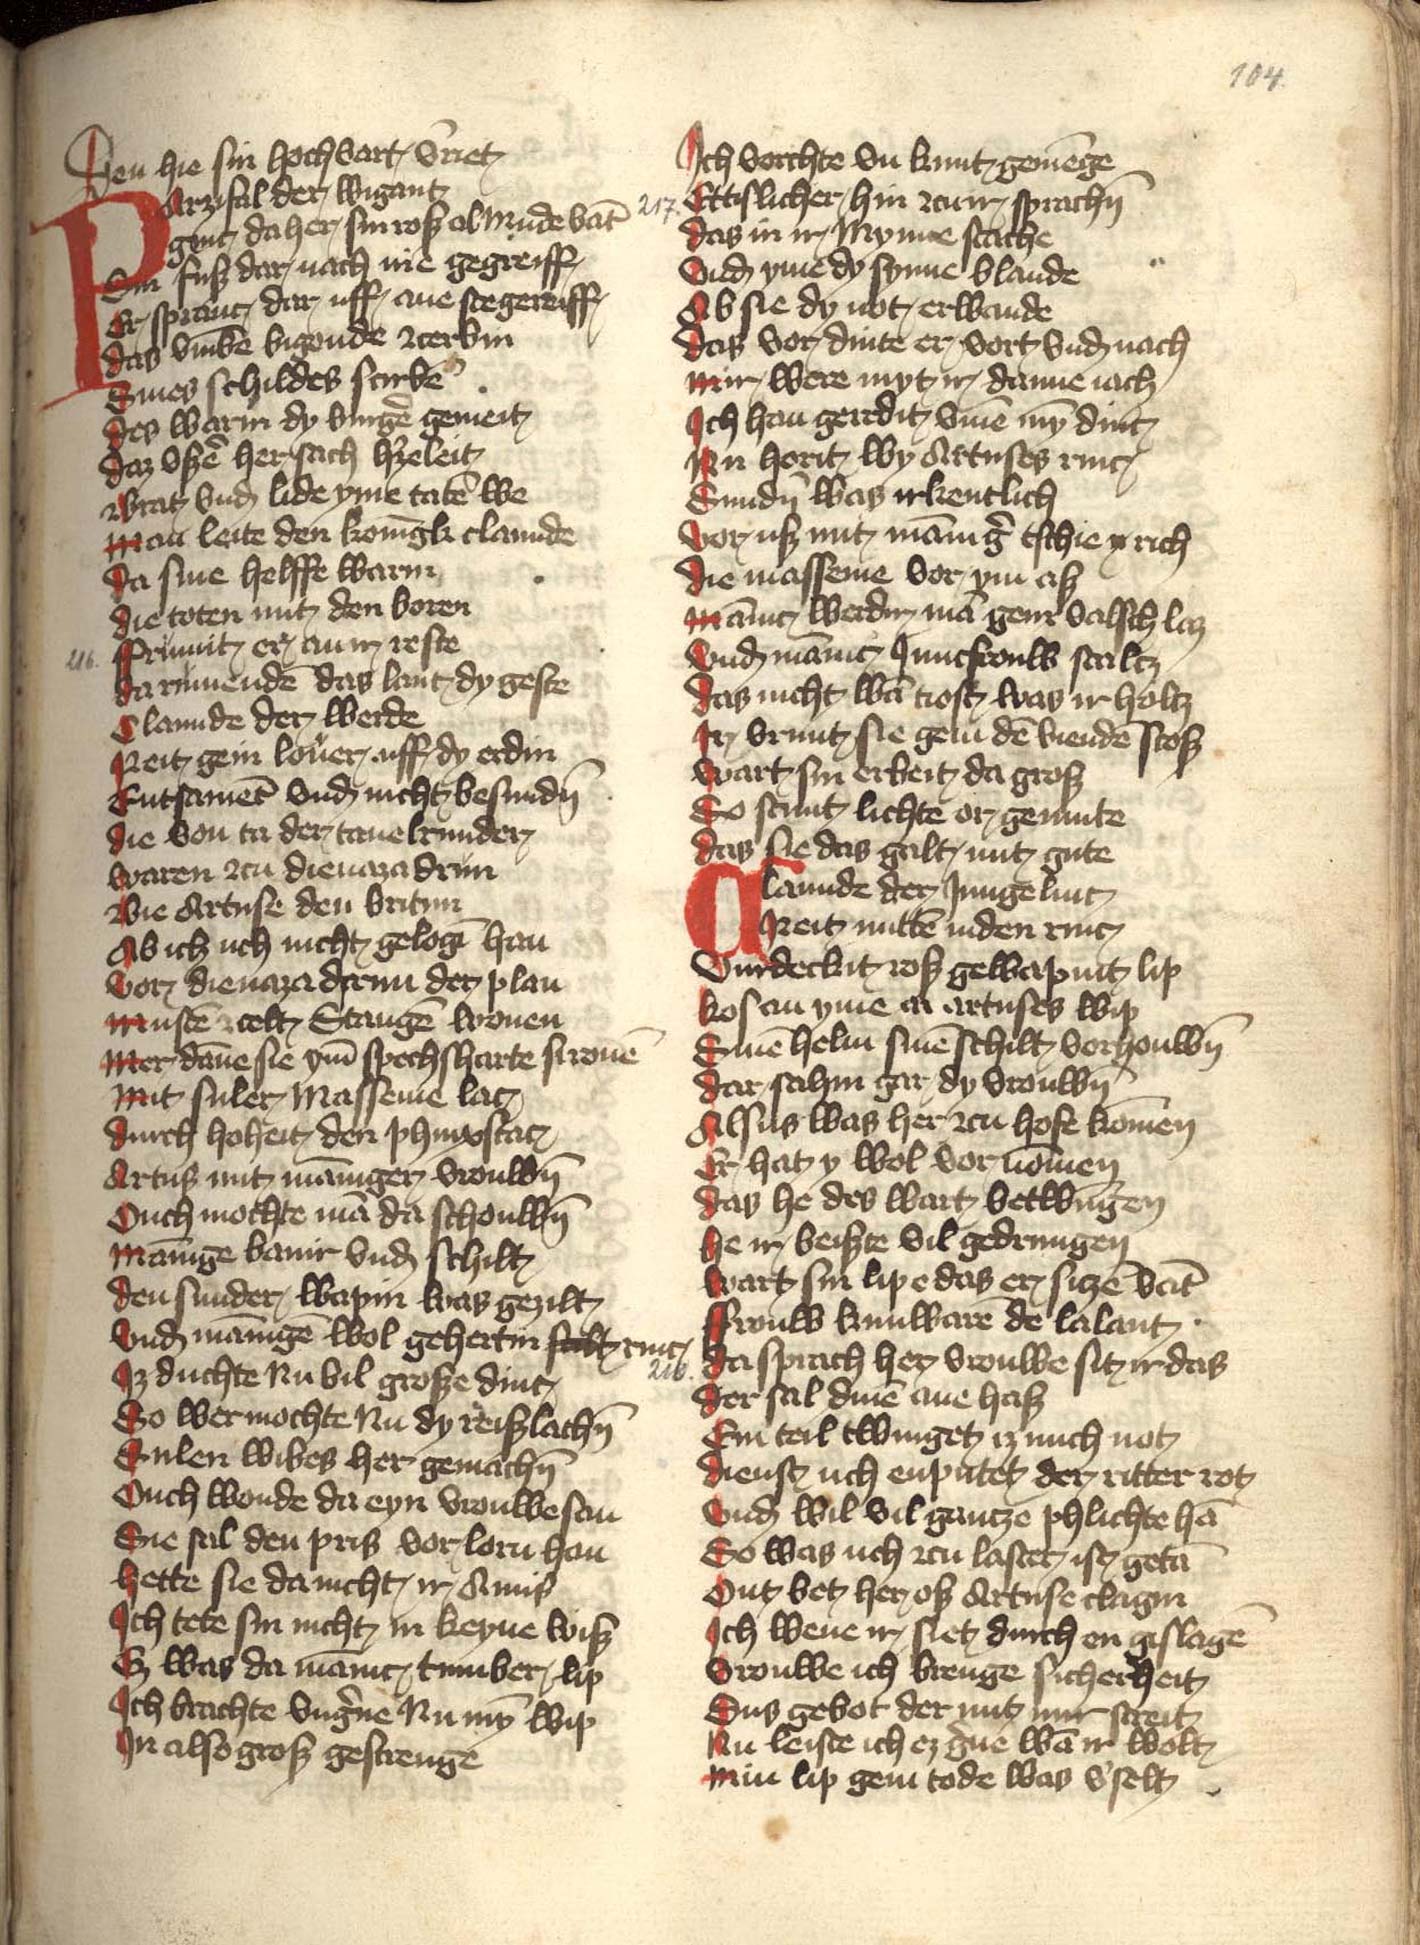 104
Den hie sin hochvart v̄riet
Parzifal der wigant
ginc da her sin roß al Mude vāt
Sin fuß dar nach nie gegreiff
Er spranc dar uff ane stegereiff
das vmbē bigonde zcerbin
Sines schildes scirbē
Des warin dy burgē gemeit
daz vßē her sach h'zeleit
Brat vnd lide yme tatē we
Man leite den konīgk clamide
da sine helffe warin
die toten mit den boren
216. Frumit er an ir reste
da rumendē das lant dy geste
Clamide der werde
Reit gein lover uff dy erdin
Entsamēt vnd nicht besundn̄
die von ta der tauelrunder
waren zcu dienazadrun
Bie Artuse den britun
Ab ich uch nicht gelogī han
vor dienaza darun der plan
Mustē zcelt Stangē wonen
Mer dāne sie ym̄ spechsharte si ronē
Mit suler Massenie lac
durch hoheit den phinxstac
Artus mit māniger vrouwn̄
Ouch mochte mā da schouwn̄
Mānige banir vnd schilt
den sunder wapin was gezilt
Vnd mānigē wol gehertin schilt rinc
Iz duchte Nu vil große dinc
So wer mochte Nu dy reißlachn̄
Sulen wibes her gemachn̄
Ouch wonde da eyn vrouwe san
Sie sal den pris vorlorn han
hette sie da nicht ir Amis
Ich tete sin nicht in keyne wiß
Ez was da mānic tumber lip
Ich brachte vng'ne Nu my̅ wip
In also groß gestrenge
Ich vorchte vn kunt gemēge
217. Ettislicher hin zcu ir sprachn̄
das in ir Mynne stache
Vnd yme dy synne blande
Ab sie dy not erwande
das vor dinte er vort vnd nach
Mir were myt ir danne iach
Ich han geredit vmē my̅ dinc
Nu horit wy Artuses rinc
Sundn̄ was irkentlich
vor uß mit mānig' tschie rich
die massenie vor ym aß
Mānic werdir mā gein valsch laz
Vnd mānic Juncfrouw staltz
das nicht wā tiost was ir holtz
Ir vrunt sie gein dē viendē schoß
wart sin erbeit da groß
So stunt lichte or gemute
das sie das galt mit gute
Clamide der Jungelinc
Reit mittē in den rinc
Virdeckit roß gewapnit lip
kos an yme Artuses wip
Sinē helm sinē schilt vorhouwn̄
dar sahin gar dy vrouwn̄
Alsus was her zcu hofe komen
Er hat y wol vornomen
das he des wart betwūgen
he ir beißte vil gedrungen
wart sin lip e das er sitzē vāt
Frouw kunware de lalant
218. Da sprach her vrouwe sit ir das
der sal dinē ane haß
Ein teil twinget iz mich not
dienst uch enputet der ritter rot
Vnd wil vil gantze phlichte hā
So was uch zcu laster ist getā
Ouch bet her oß Artuse clagin
Ich wene ir siet durch en gislagē
Vrouwe ich brenge sicherheit
Sus gebot der mit mir streit
Nu leiste ich ez g'ne wā ir wolt
Min lip gein tode was v'selt